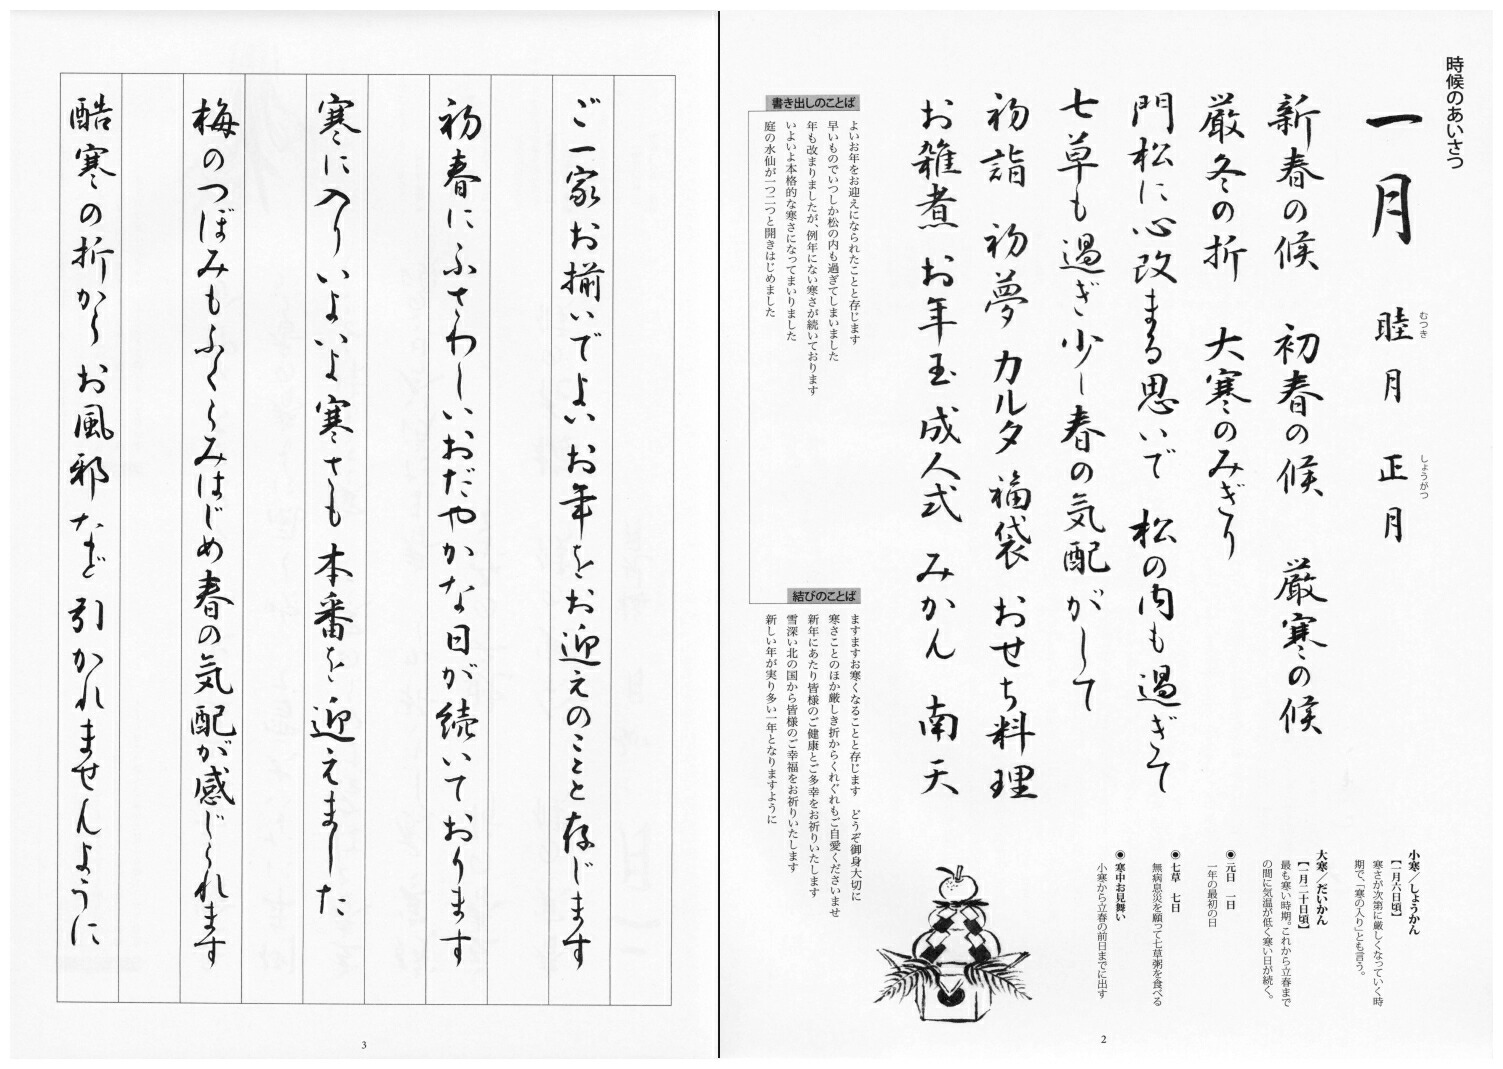 時候のあいさつ
一月 睦月 正月
むつき しょうがつ
新春の候 初春の候 厳寒の候
厳冬の折 大寒のみぎり
門松に心改まる思いで 松の内も過ぎて
七草も過ぎ少し春の気配がして
初詣 初夢 カルタ 福袋 おせち料理
お雑煮 お年玉 成人式 みかん 南天
小寒／しょうかん
【一月六日頃】
寒さが次第に厳しくなっていく時
期で、「寒の入り」とも言う。
大寒／だいかん
【一月二十日頃】
最も寒い時期。これから立春まで
の間に気温が低く寒い日が続く。
◉元日 一日
一年の最初の日
◉七草 七日
無病息災を願って七草粥を食べる
◉寒中お見舞い
小寒から立春の前日までに出す
書き出しのことば
よいお年をお迎えになられたことと存じます
早いものでいつしか松の内も過ぎてしまいました
年も改まりましたが、例年にない寒さが続いております
いよいよ本格的な寒さになってまいりました
庭の水仙が一つ二つと開きはじめました
結びのことば
ますますお寒くなることと存じます どうぞ御身大切に
寒さことのほか厳しき折からくれぐれもご自愛くださいませ
新年にあたり皆様のご健康とご多幸をお祈りいたします
雪深い北の国から皆様のご幸福をお祈りいたします
新しい年が実り多い一年となりますように
2
ご一家お揃いでよいお年をお迎えのことと存じます
初春にふさわしいおだやかな日が続いております
寒に入りいよいよ寒さも本番を迎えました
梅のつぼみもふくらみはじめ春の気配が感じられます
酷寒の折からお風邪など引かれませんように
3